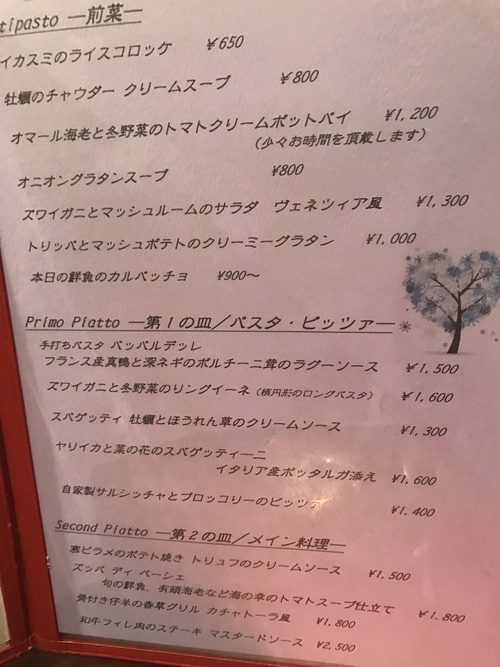 tipasto ―前菜―
イカスミのライスコロッケ ¥650
牡蠣のチャウダー クリームスープ ¥800
オマール海老と冬野菜のトマトクリームポットパイ ¥1,200
(少々お時間を頂戴します)
オニオングラタンスープ ¥800
ズワイガニとマッシュルームのサラダ ヴェネツィア風 ¥1,300
トリッパとマッシュポテトのクリーミーグラタン ¥1,000
本日の鮮魚のカルパッチョ ¥900～
Primo Piatto ―第1の皿／パスタ・ピッツァ―
手打ちパスタ パッパルデッレ
フランス産真鴨と深ネギのポルチーニ茸のラグーソース ¥1,500
ズワイガニと冬野菜のリングイーネ (楕円形のロングパスタ) ¥1,600
スパゲッティ 牡蠣とほうれん草のクリームソース ¥1,300
ヤリイカと菜の花のスパゲッティーニ
イタリア産ボッタルガ添え ¥1,600
自家製サルシッチャとブロッコリーのピッツァ ¥1,400
Second Piatto ―第2の皿／メイン料理―
寒ビラメのポテト焼き トリュフのクリームソース ¥1,500
ズッパ ディ ペーシェ
旬の鮮魚、有頭海老など海の幸のトマトスープ仕立て ¥1,800
骨付き仔羊の香草グリル カチャトーラ風 ¥1,800
和牛フィレ肉のステーキ マスタードソース ¥2,500